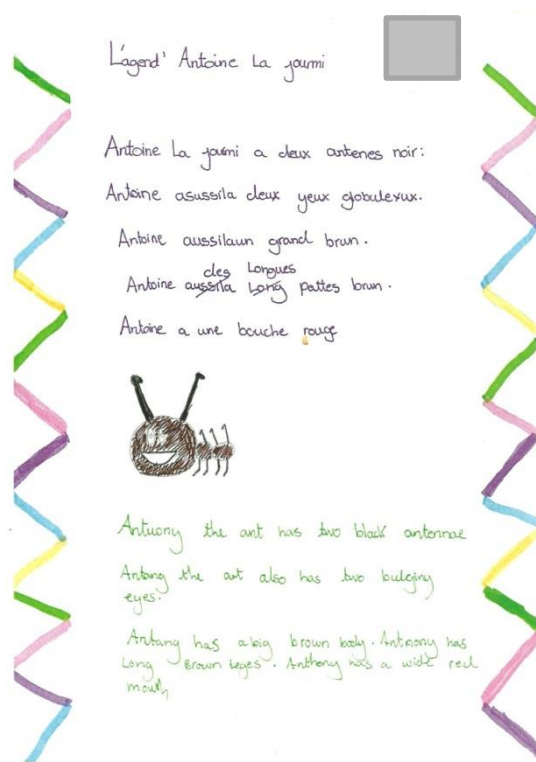 L'agend' Antoine La fourmi
Antoine La fourmi a deux antenes noir:
Antoine asussila deux yeux globulexux.
Antoine aussilaun grand brun.
des Longues
Antoine aussila Long pattes brun.
Antoine a une bouche rouge
Antuony the ant has two black antennae
Antony the ant also has two bulging
eyes.
Antany has a big brown body. Antnony has
Long Brown leges. Anthony has a wide red
mouth